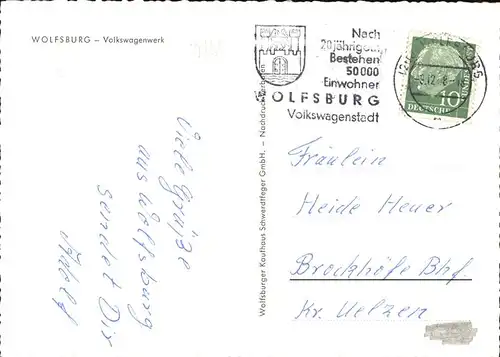 WOLFSBURG – Volkswagenwerk
Nach
20jährigem
Bestehen
50 000
Einwohner
WOLFSBURG
Volkswagenstadt
10
DEUTSCHE
Wolfsburger Kaufhaus Schwerdtfeger GmbH. – Nachdruck verboten
Viele Grüße
aus Wolfsburg
sendet Dir
Adolf
Fräulein
Heide Heuer
Brockhöfe Bhf.
Kr. Uelzen